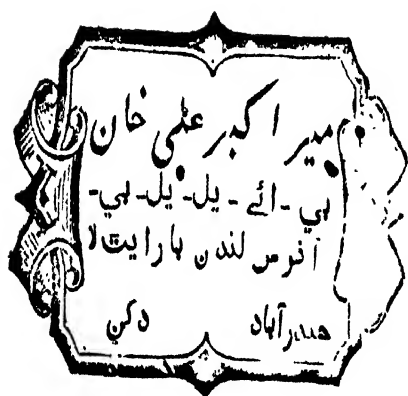 میر اکبر علی خان
بی - ائے - یل - یل - بی -
آنرس لندن بار ایٹ لا
حیدرآباد دکن